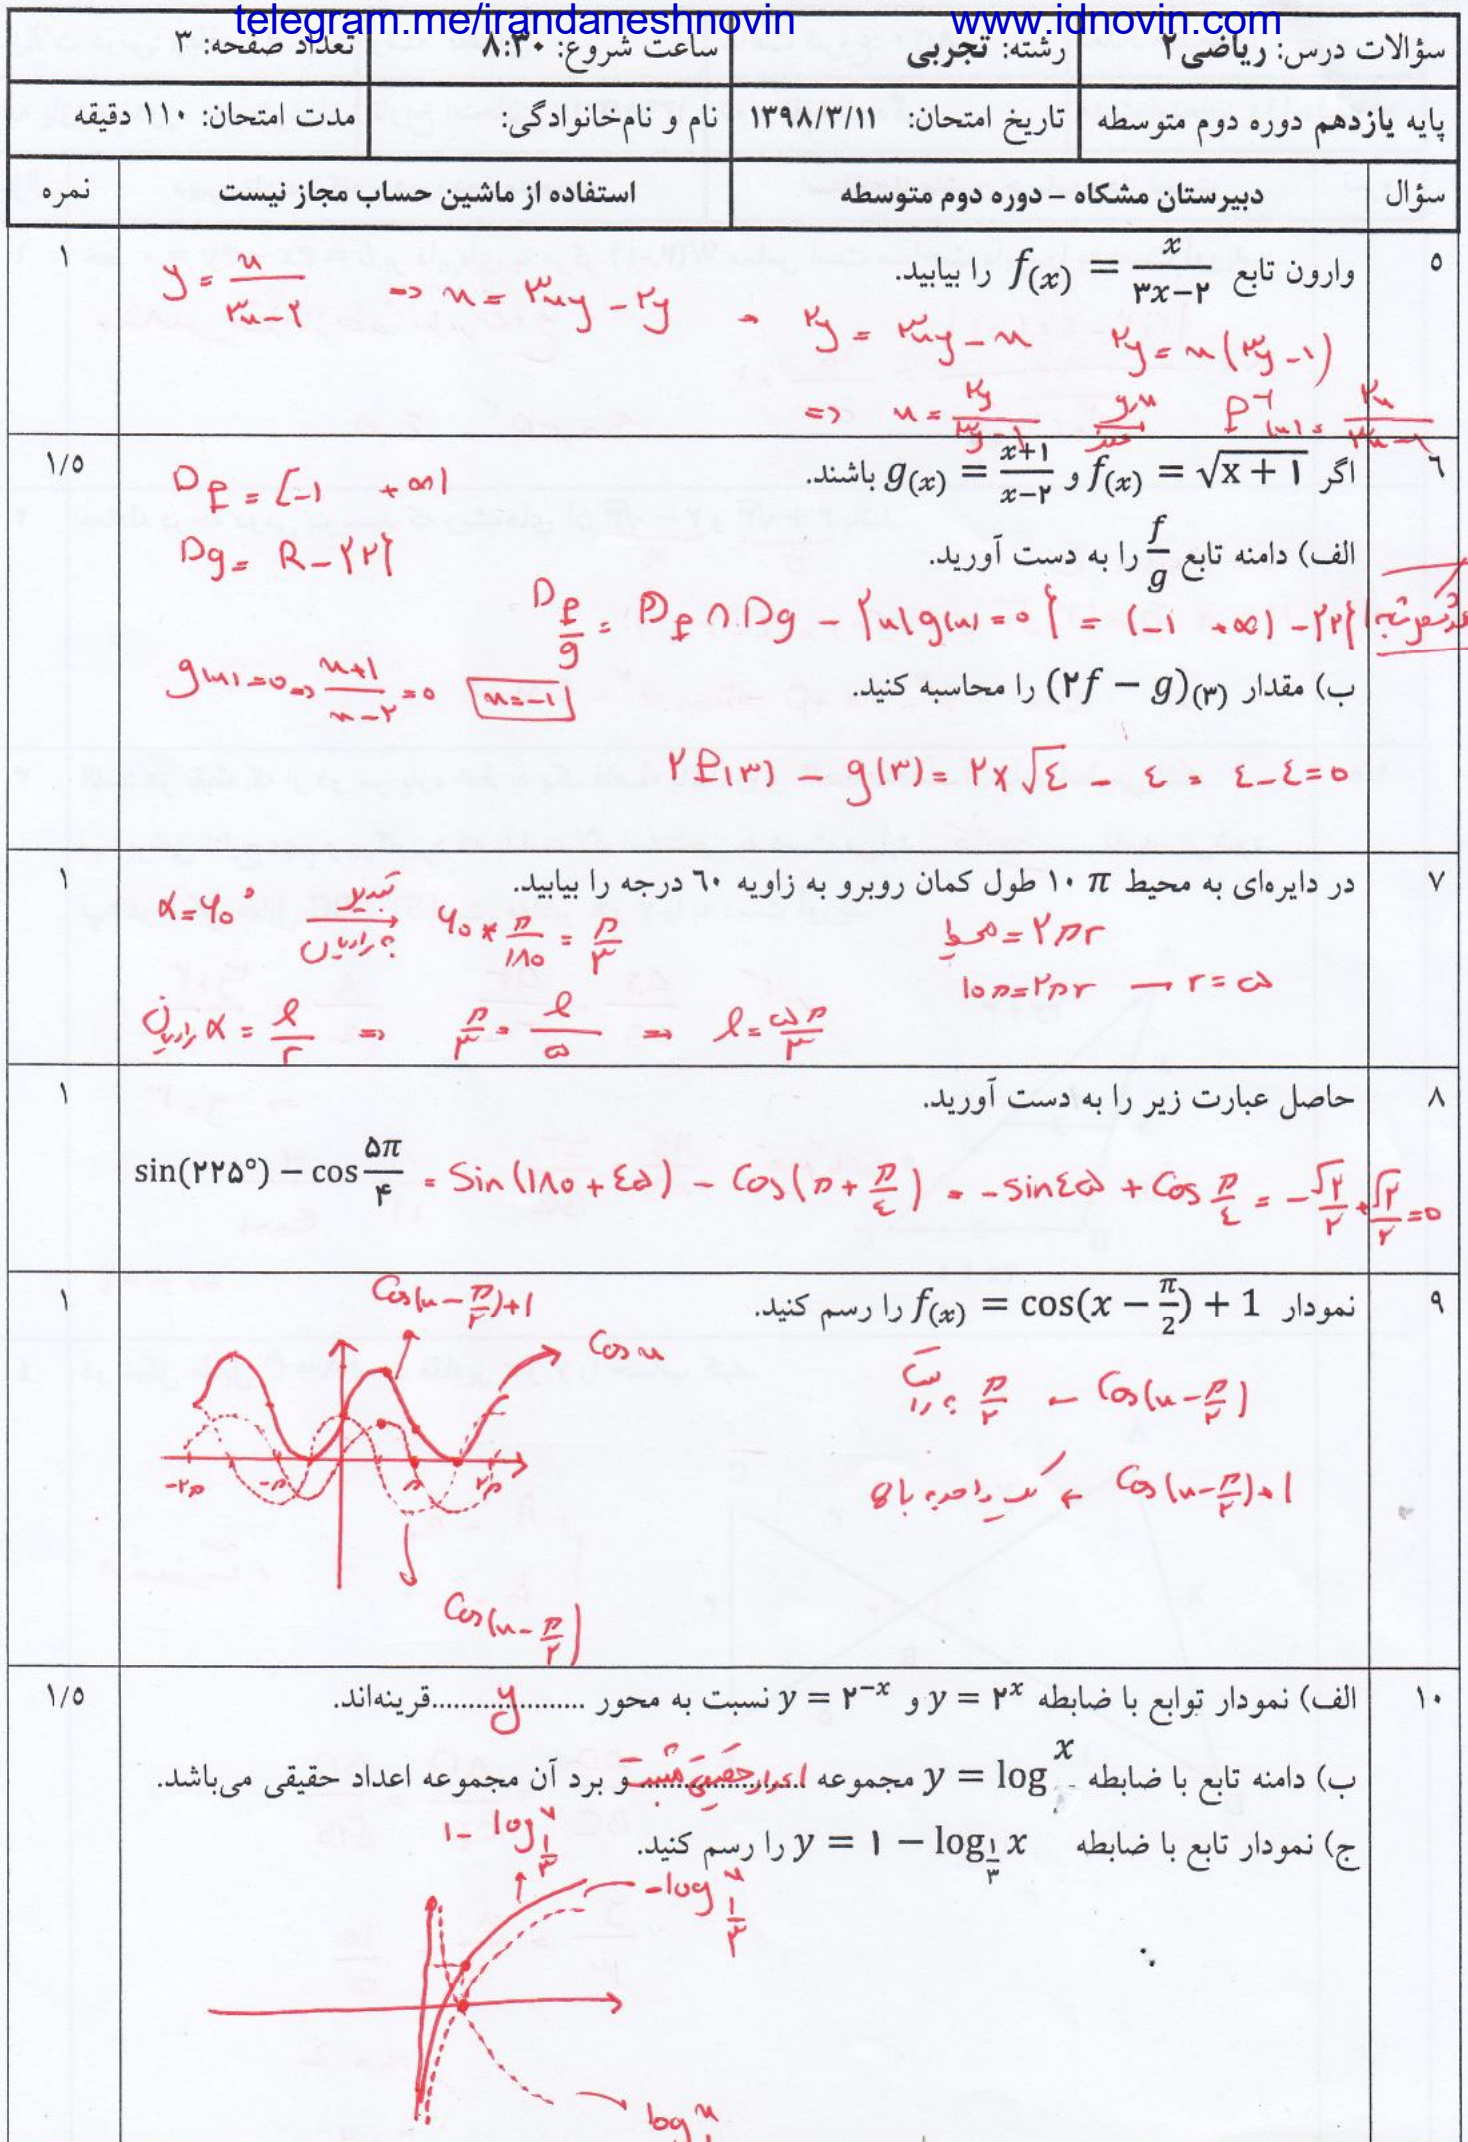 telegram.me/irandaneshnovin www.idnovin.com
سؤالات درس: ریاضی ۲ رشته: تجربی ساعت شروع: ۸:۳۰ تعداد صفحه: ۳
پایه یازدهم دوره دوم متوسطه تاریخ امتحان: ۱۳۹۸/۳/۱۱ نام و نام‌خانوادگی: مدت امتحان: ۱۱۰ دقیقه
سؤال دبیرستان مشکاه – دوره دوم متوسطه استفاده از ماشین حساب مجاز نیست نمره
۵ وارون تابع f(x) = x/(۳x−۲) را بیابید. ۱
y = x/(۳x−۲) => x = ۳xy − ۲y → ۲y = ۳xy − x ۲y = x(۳y−۱)
=> x = ۲y/(۳y−۱) f⁻¹(x) = ۲x/(۳x−۱)
۶ اگر f(x) = √(x+۱) و g(x) = (x+۱)/(x−۲) باشند. ۱/۵
Df = [−۱ +∞)
الف) دامنه تابع f/g را به دست آورید.
Dg = R − {۲}
D f/g = Df ∩ Dg − {x| g(x) = ۰} = (−۱ +∞) − {۲}
ب) مقدار (۲f − g)(۳) را محاسبه کنید.
g(x) = ۰ => (x+۱)/(x−۲) = ۰ x=−۱
۲f(۳) − g(۳) = ۲×√٤ − ٤ = ٤−٤=۰
۷ در دایره‌ای به محیط ۱۰ π طول کمان روبرو به زاویه ۶۰ درجه را بیابید. ۱
α=۶۰° تبدیل به رادیان ۶۰ × π/۱۸۰ = π/۳
محیط = ۲πr
۱۰π=۲πr → r = ۵
رادیان α = l/r => π/۳ = l/۵ => l = ۵π/۳
۸ حاصل عبارت زیر را به دست آورید. ۱
sin(۲۲۵°) − cos ۵π/۴ = Sin(۱۸۰ + ٤۵) − Cos(π + π/٤) = −sin٤۵ + Cos π/٤ = −√۲/۲ + √۲/۲ = ۰
۹ نمودار f(x) = cos(x − π/2) + 1 را رسم کنید. ۱
Cos(x − π/۲)+۱
Cos x
Cos(x−π/۲) ← π/۲ به راست
Cos(x−π/۲)+۱ ← یک واحد به بالا
−۲π −π π ۲π
Cos(x−π/۲)
۱۰ الف) نمودار توابع با ضابطه y = ۲^x و y = ۲^−x نسبت به محور ......y......قرینه‌اند. ۱/۵
ب) دامنه تابع با ضابطه y = log x مجموعه اعداد حقیقی مثبت و برد آن مجموعه اعداد حقیقی می‌باشد.
ج) نمودار تابع با ضابطه y = ۱ − log_۱/۳ x را رسم کنید.
۱− log_۱/۳ x
−log_۱/۳ x
log x